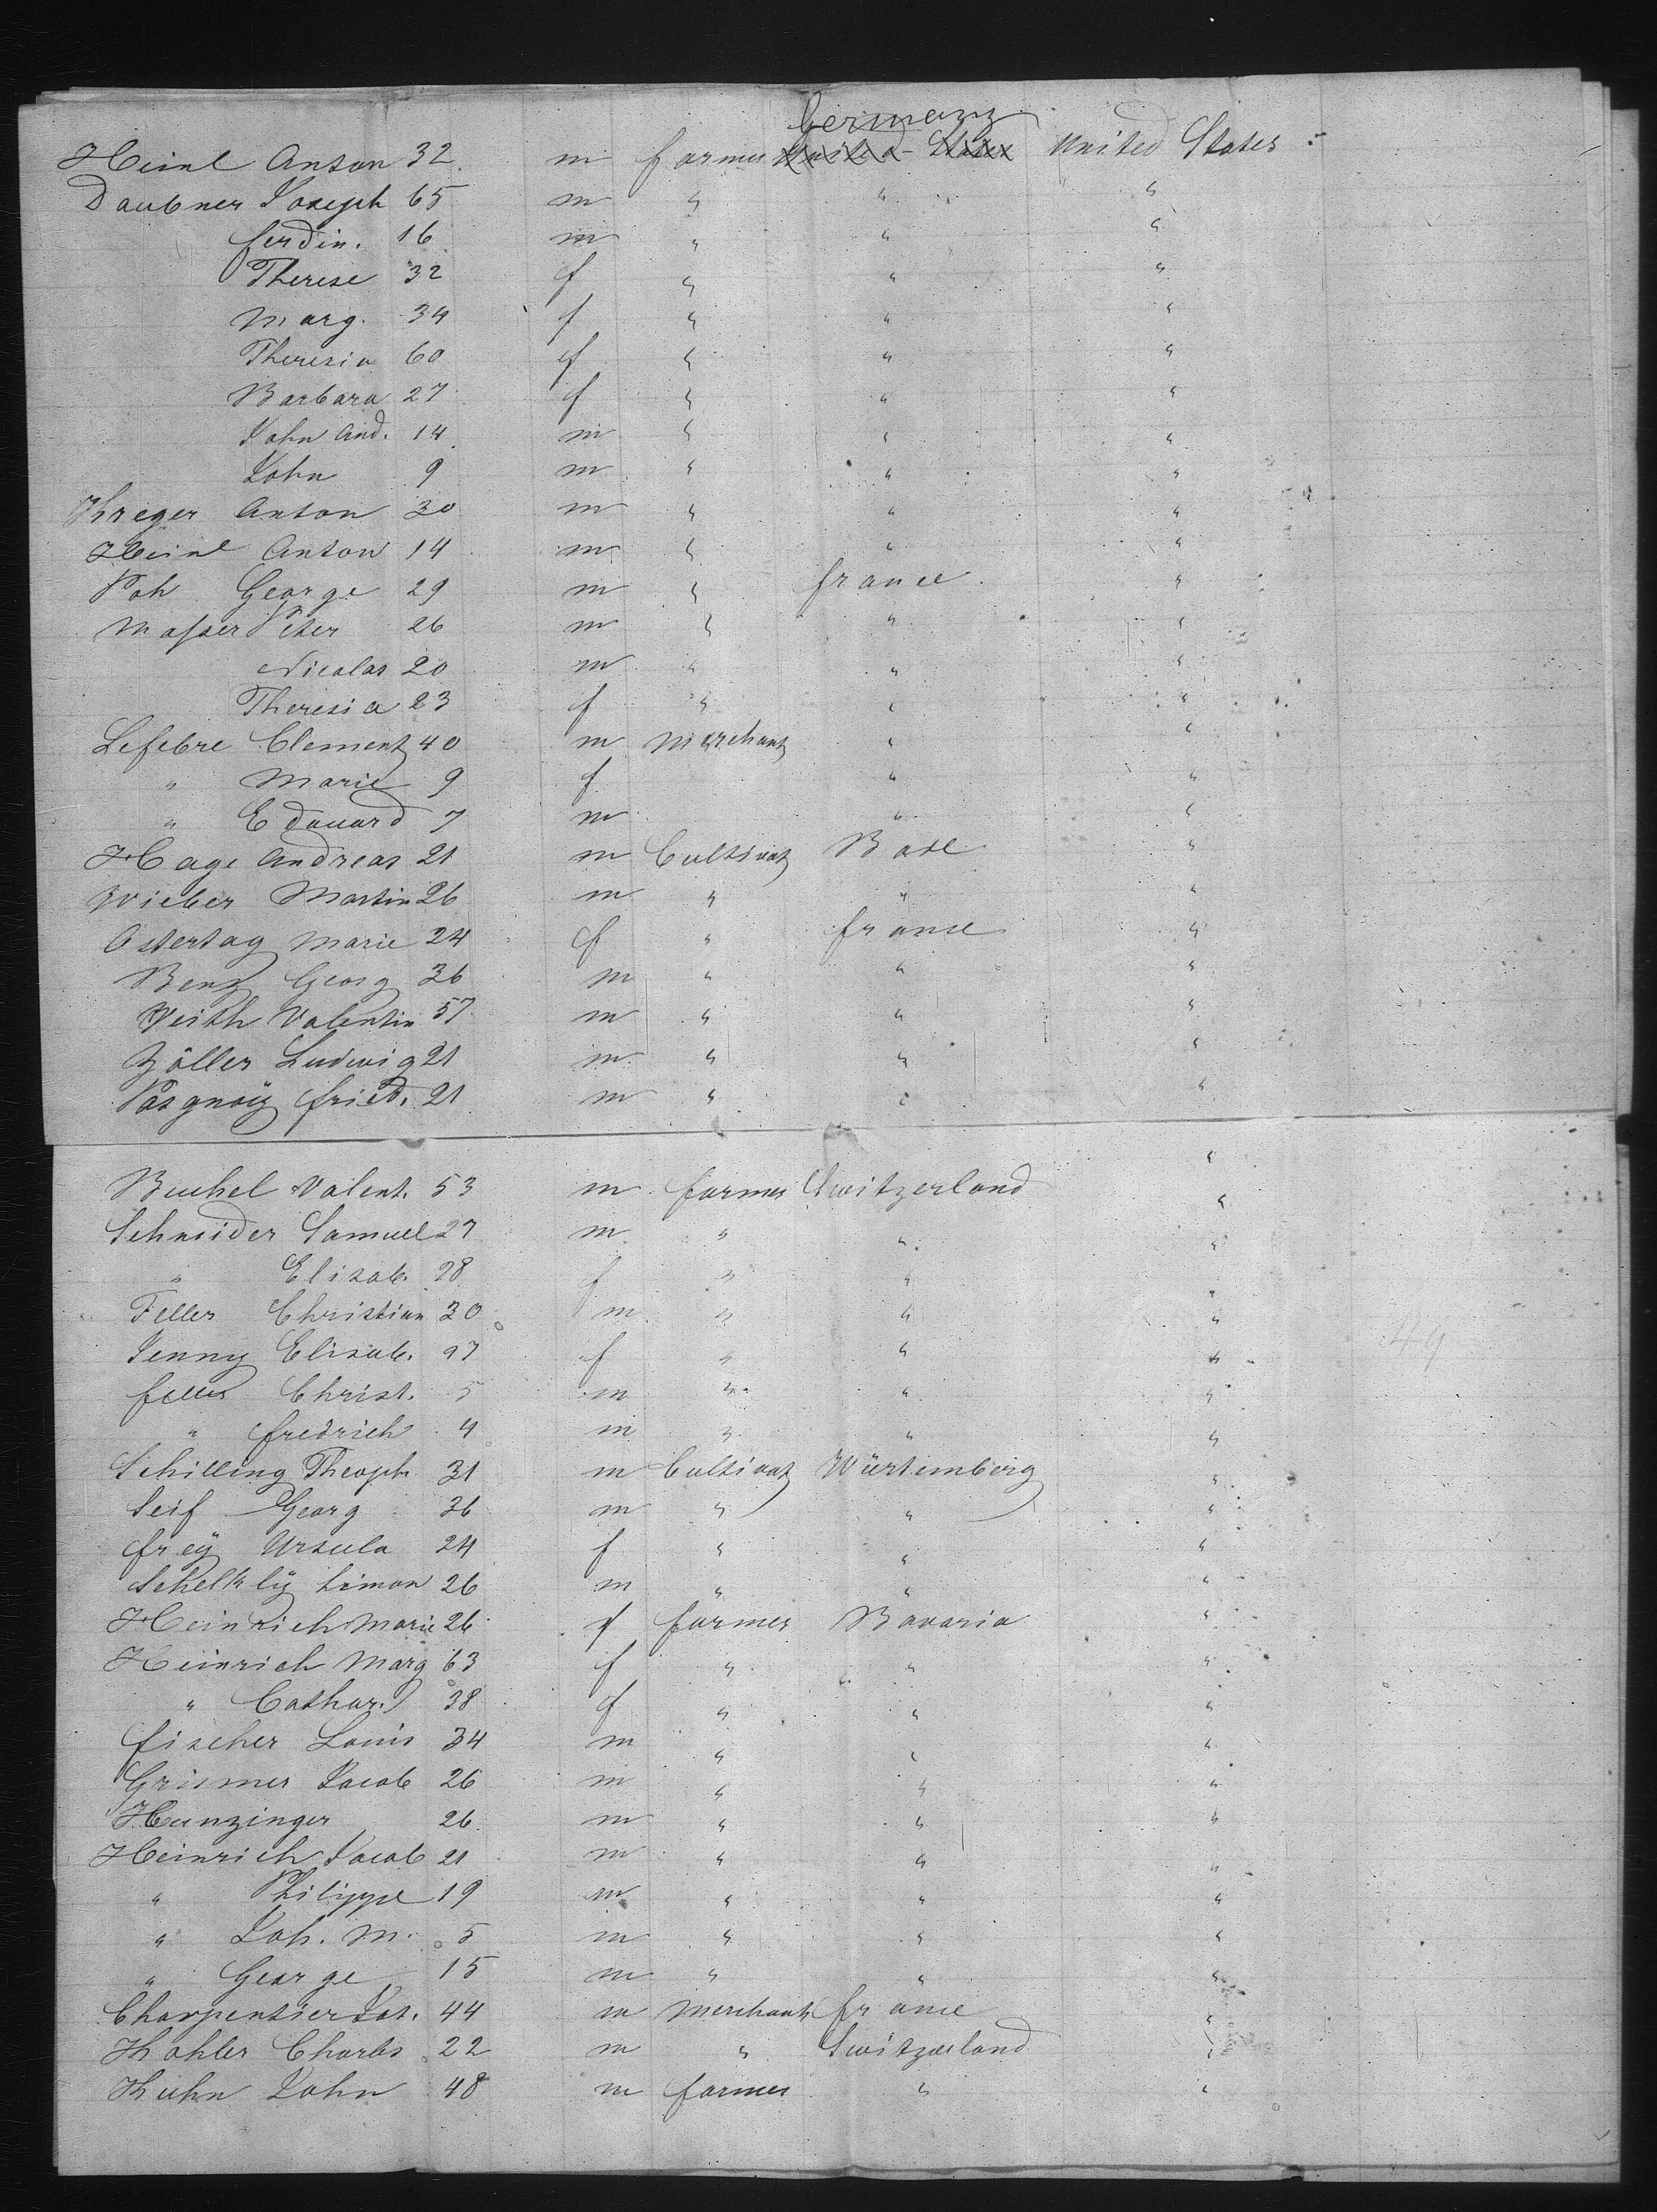 Germany
Heinl Anton 32 m farmer United States United States
Daubner Joseph 65 m " " "
ferdin. 16 m " " "
Therese 32 f " " "
Marg. 34 f " " "
Theresia 60 f " " "
Barbara 27 f " " "
John And. 14 m " " "
John 9 m " " "
Kreger Anton 30 m " " "
Heinl Anton 14 m " " "
Poh George 29 m " france "
Masser Peter 26 m " " "
Nicolas 20 m " " "
Theresia 23 f " " "
Lefebre Clement 40 m Merchant " "
" Marie 9 f " "
" Edouard 7 m " "
Hage Andreas 21 m Cultivat Bade "
Wieber Martin 26 m " " "
Ostertag Marie 24 f " france "
Benz Georg 36 m " " "
Veith Valentin 57 m " " "
Zöller Ludwig 21 m " " "
fried. 21 m " " "
"
Buchel Valent. 53 m farmer Switzerland "
Schneider Samuel 27 m " " "
" Elisab. 28 f " " "
Feller Christian 30 m " " "
Jenny Elisab. 27 f " " "
feller Christ. 5 m " " "
" fredrich 4 m " " "
Schilling Theoph 31 m Cultivat Würtemberg "
Seif Georg 36 m " " "
freÿ Ursula 24 f " " "
Schelklÿ Simon 26 m " " "
Heinrich Marie 26 f farmer Bavaria "
Heinrich Marg 63 f " " "
" Cathar. 38 f " " "
fischer Louis 34 m " " "
Grismer Jacob 26 m " " "
Hunzinger 26 m " " "
Heinrich Jacob 21 m " " "
" Philippe 19 m " " "
" Joh. M. 5 m " " "
" George 15 m " " "
Charpentier Jos. 44 m Merchant france "
Kohler Charles 22 m " Switzerland "
Kuhn John 48 m farmer " "
49